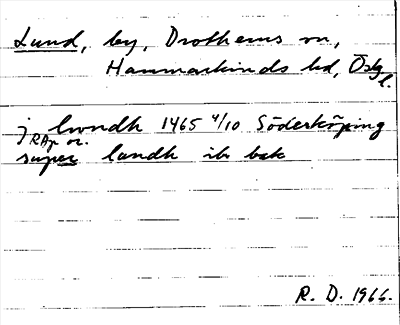 Lund, by, Drothems sn,
Hammarkinds hd, Östg
l.
j lwndh 1465 4/10 Söderköping
RAp or.
super landh ib bak
R. D. 1966.